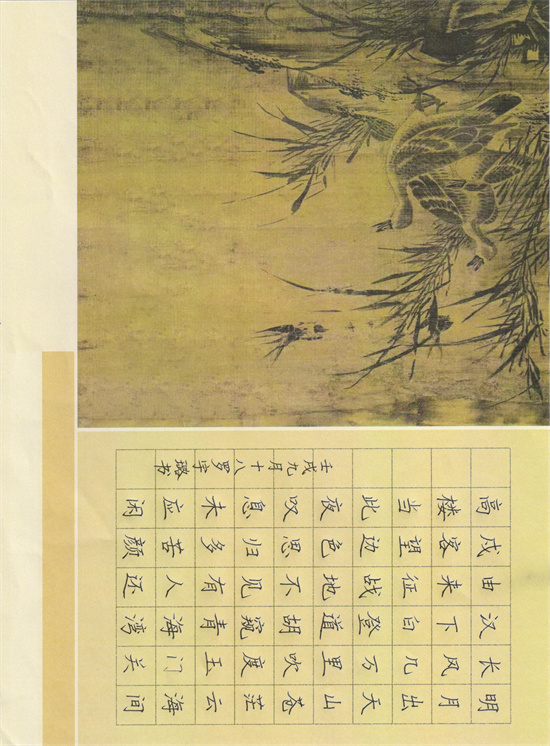 明月出天山苍茫云海间
长风几万里吹度玉门关
汉下白登道胡窥青海湾
由来征战地不见有人还
戍客望边色思归多苦颜
高楼当此夜叹息未应闲
壬戌九月十八罗宇璐书